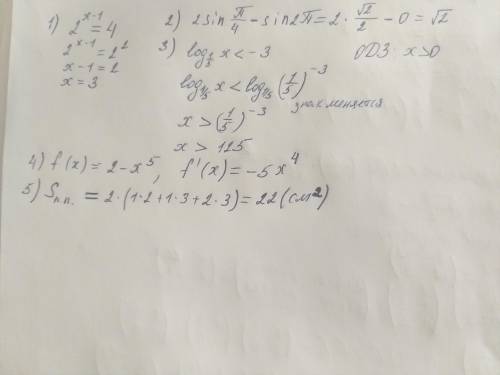 1) 2^{x-1} = 4
2^{x-1} = 2^2
x - 1 = 2
x = 3
2) 2 sin π/4 - sin 2π = 2 · √2/2 - 0 = √2
3) log_{1/5} x < -3 ОДЗ: x > 0
log_{1/5} x < log_{1/5} (1/5)^{-3}
знак меняется
x > (1/5)^{-3}
x > 125
4) f(x) = 2 - x^5, f'(x) = -5x^4
5) S_{п.п.} = 2 · (1·2 + 1·3 + 2·3) = 22 (см^2)